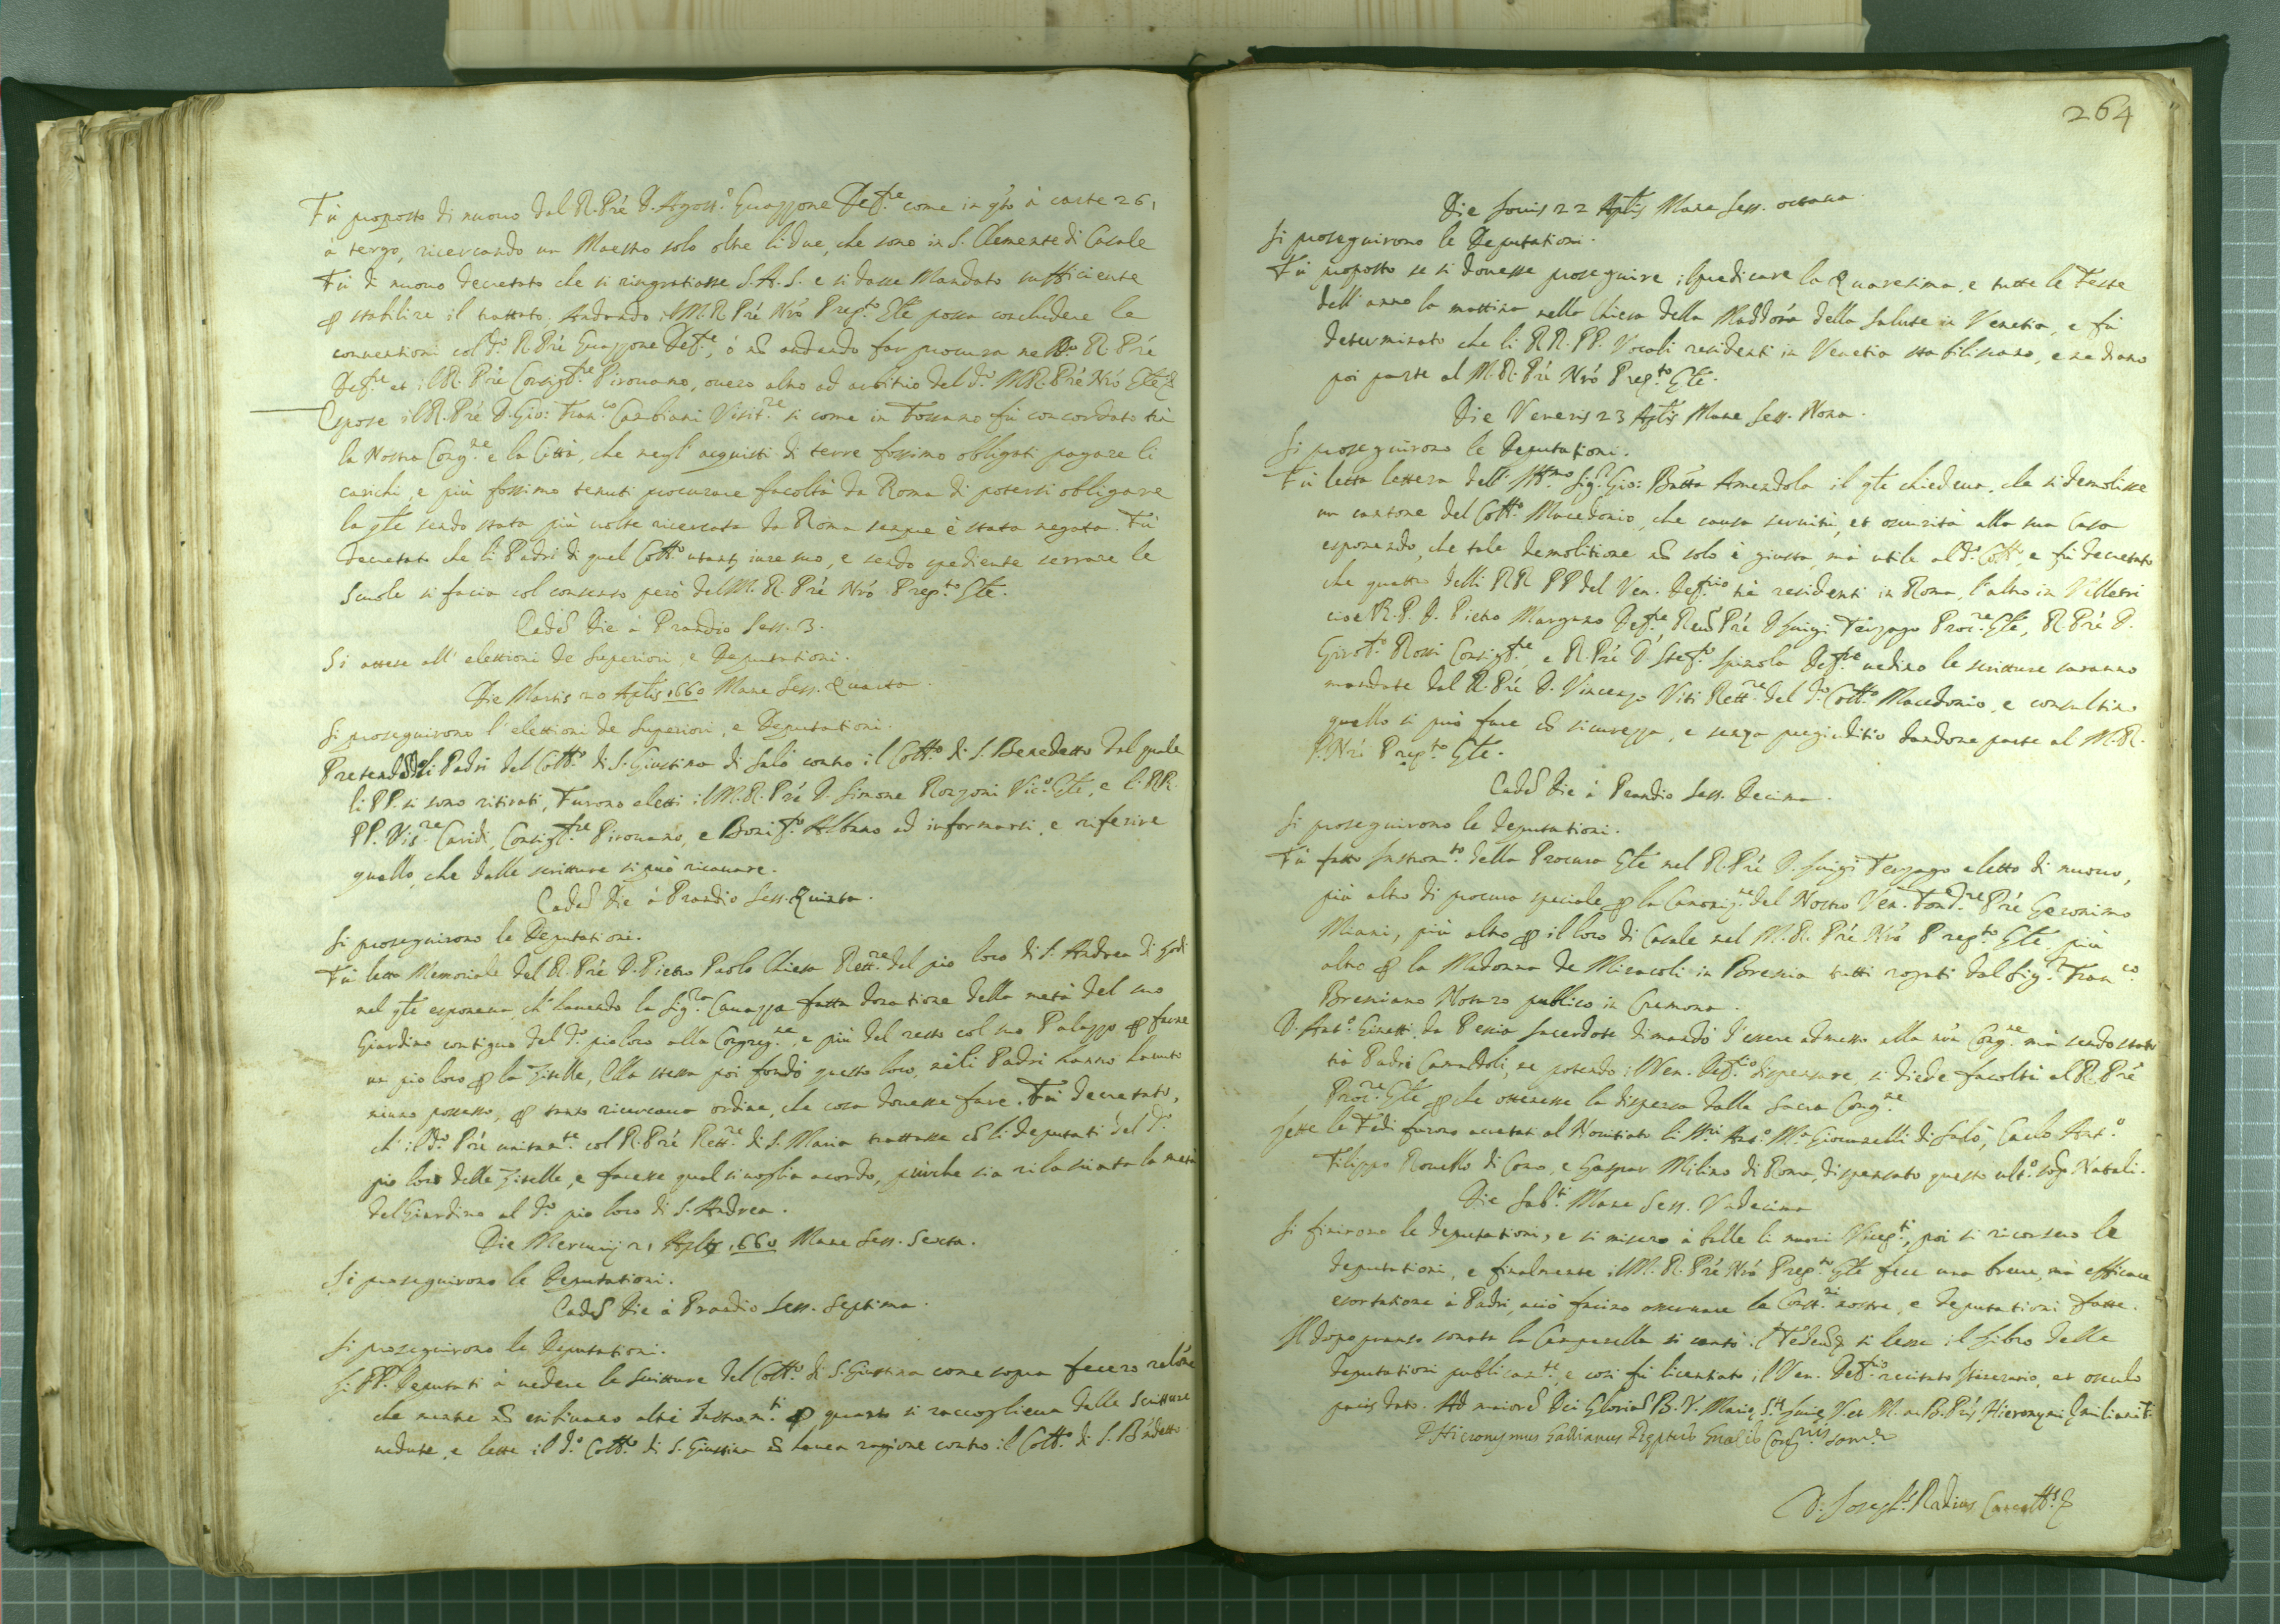 Fù proposto di nuouo dal R. Pré D. Agost.º Guazzone Def.re come in qto à carte 261
à tergo, ricercando un Maestro solo oltre li due, che sono in S. Clemente di Casale
Fù di nuouo decretato che si ringratiasse S.A.S. e si dasse Mandato sufficiente
ꝑ stabilire il trattato. Andando il M.R. Pré Nrõ Prep.to Gle possa concludere le
conuentioni col d.º R. Pré Guazzone Def.re, ó nõ andando far procura nello R. Pré
Def.re et il R. Pré Consig.re Pirouano, ouero altro ad arbitrio del d.º M.R. Pré Nrõ Gle
Espose il R. Pré D. Gio: Fran.co Cambiani Visit.re si come in Fossano fù concordato trà
la Nostra Cong.ne e la Città, che negl' acquisti di terre fossimo obligati pagare li
carichi, e più fossimo tenuti procurare facoltà da Roma di potersi obligare
la qle sendo stata più uolte ricercata da Roma sempre è stata negata. Fù
decretato che li Padri di quel Coll.º utant iure suo, e sendo spediente serrare le
Scuole si facia col consenso però del M.R. Pré Nrõ Prep.to Gle.
Eadẽ Die à Prandio Sess. 3.
Si attese all' elettioni de Superiori, e Deputationi.
Die Martis 20 Aplis 1660 Mane Sess. Quarta.
Si proseguirono l'elettioni de Superiori, e Deputationi.
Pretendẽdo li Padri del Coll.º di S. Giustina di Salò contro il Coll.º di S. Benedetto dal quale
li PP. si sono ritirati, Furono eletti il M.R. Pré D. Simone Ronzoni Vic.º Gle, e li RR.
PP. Vis.re Caridi, Consig.re Pirouano, e Bonif.º Albano ad informarsi, e riferire
quello, che dalle scritture si può ricauare.
Eadẽ Die à Prandio Sess. Quinta.
Si proseguirono le Deputationi.
Fù letto Memoriale del R. Pré D. Pietro Paolo Chiesa Rett.re del pio loco di S. Andrea di Lodi
nel qle esponeua, ch' hauendo la Sig.ra Cauazza fatta donatione della metà del suo
Giardino contiguo del d.º pio loco alla Congreg.ne, e più del resto col suo Palazzo ꝑ farne
un pio loco ꝑ la Zitelle, Essa stessa poi fondò questo loco, nè li Padri hanno hauuto
niuno possesso, ꝑ tanto ricercaua ordine, che cosa douesse fare. Fù decretato,
ch' il d.º Pré unitam.te col R. Pré Rett.re di S. Maria trattasse cõ li deputati del d.º
pio loco delle Zitelle, e facesse qual si uoglia acordo, purche sia rilasciata la metà
del Giardino al d.º pio loco di S. Andrea.
Die Mercurij 21 Aplis 1660 Mane Sess. Sexta.
Si proseguirono le Deputationi.
Eadẽ Die à Prandio Sess. Septima.
Si proseguirono le Deputationi.
Li PP. Deputati à uedere le scritture del Coll.º di S. Giustina come sopra fecero relõne
che mentre nõ esibiuano altri Instrom.ti ꝑ quanto si raccoglieua dalle Scritture
uedute, e lette il d.º Coll.º di S. Giustina nõ hauea ragione contro il Coll.º di S. Bñdetto.
264
Die Iouis 22 Aplis Mane Sess. octaua.
Si proseguirono le Deputationi.
Fù proposto se si douesse proseguire il predicare la Quaresima, e tutte le Feste
dell' anno la mattina nella Chiesa della Maddõna della Salute in Venetia, e fù
determinato che li RR. PP. Vocali residenti in Venetia stabiliscano, e ne diano
poi parte al M.R. Pré Nrõ Prep.to Gle.
Die Veneris 23 Aplis Mane Sess. Nona.
Si proseguirono le Deputationi.
Fù letta lettera dell' Ill.mo Sig.r Gio: Batta Amendola il qle chiedeua, che si demolisse
un cantone del Coll.º Macedonio, che causa seruitù, et oscurità alla sua Casa
esponendo, che tale demolitione nõ solo è giusta, mà utile al d.º Coll.º, e fù decretato
che quattro delli RR PP del Ven. Def.rio trè residenti in Roma, l'altro in Velletri
cioè R.P. D. Pietro Margano Def.re Reu.do Pré D. Luigi Terzago Proc.re Gle, R. Pré D.
Girol.º Rossi Consig.re, e R. Pré D. Stef.º Spinola Def.re uedino le scritture saranno
mandate dal R. Pré D. Vincenzo Viti Rett.re del d.º Coll.º Macedonio, e consultino
quello si può fare cõ sicurezza, e senza pregiuditio dandone parte al M.R.
P. Nrõ Prep.to Gle.
Eadẽ Die à Prandio Sess. Decima.
Si proseguirono le deputationi.
Fù fatto Instrom.to della Procura Gle nel R. Pré D. Luigi Terzago eletto di nuouo,
più altro di procura speciale ꝑ la Canoniz.ne del Nostro Ven. Fond.re Pré Geronimo
Miani, più altro ꝑ il loco di Casale nel M.R. Pré Nrõ Prep.to Gle. più
altro ꝑ la Madonna de Miracoli in Brescia tutti rogati dal Sig.r Fran.co
Bresciano Notaro publico in Cremona.
D. Ant.º Ginetti da Pescia sacerdote dimandò d'essere admesso alla nra Cong.ne mà sendo stato
trà Padri Camaldoli, ne potendo il Ven. Def.rio dispensare, si diede facoltà al R. Pré
Proc.re Gle ꝑche ottenesse la dispensa dalla Sacra Cong.ne
Lette le Fedi furono accettati al Nouitiato li Ill.ri Ant.º M.a Giouanelli di Salò, Carlo Ant.º
Filippo Rouello di Como, e Gaspar Milino di Roma, dispensato questo ult.º sop. Natali.
Die Sab.ti Mane Sess. Vndecima
Si finirono le deputationi, e si misero à balle li nuoui Vicep.ti, poi si ricorsero le
deputationi, e finalmente il M.R. Pré Nrõ Prep.to Gle fece una breue, mà efficace
esortatione à Padri, acciò faccino osseruare le Const.ni nostre, e deputationi fatte.
Il dopo pranso sonata la Campanella si cantò il Tedeũ, si lesse il Libro delle
deputationi publicam.te, e così fù licentiato il Ven. Def.rio recitato Itinerario, et osculo
pacis dato. Ad maiorẽ Dei Gloriã B.V. Mariæ, S.ti Huie V. et M. ac B. Pris Hieronymi Æmiliani
D. Hieronymus Galliamus Pręptus Gnalis Cong.nis Som.ę
D. Ioseph Radius Cancell.s